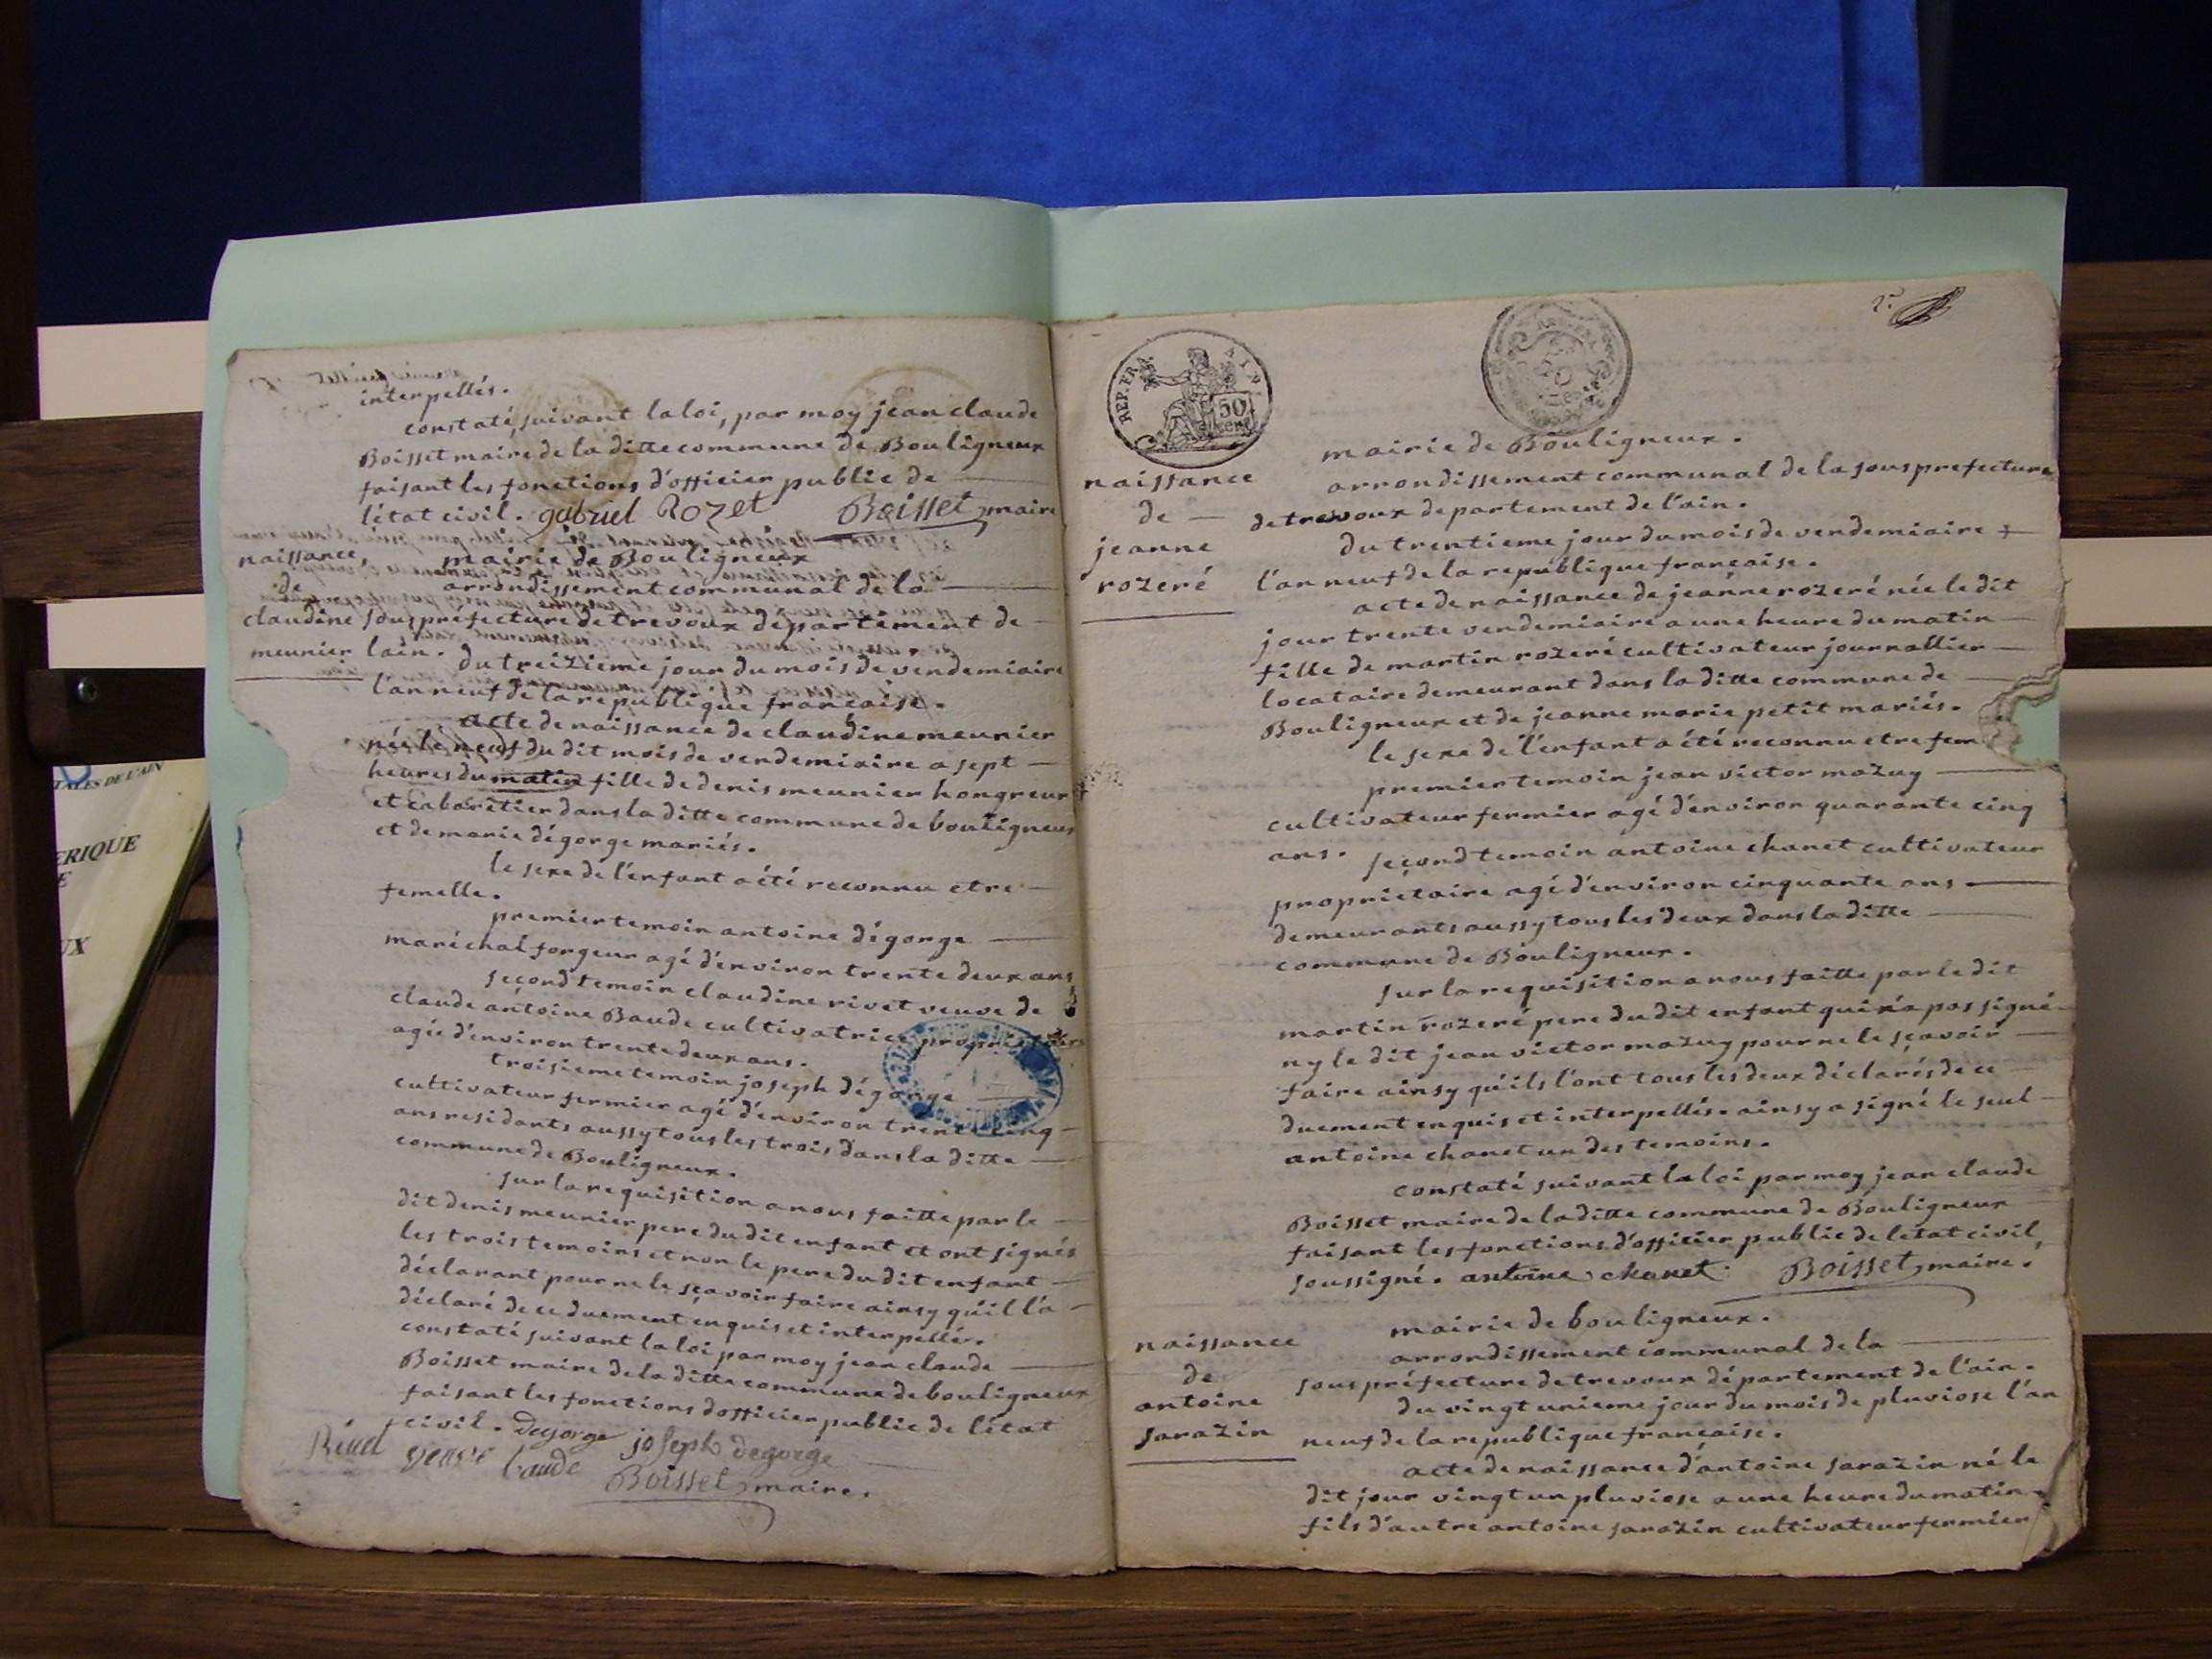 interpellés.
constaté, suivant la loi, par moy jean claude
Boisset maire de la ditte commune de Bouligneux
faisant les fonctions d'officier public de
l'état civil. gabriel Rozet Boisset, maire
naissance
de
claudine
meunier
mairie de Bouligneux
arrondissement communal de la
sousprefecture de trevoux département de
lain. du treizieme jour du mois de vendemiaire
l'an neuf de la republique francaise.
acte de naissance de claudine meunier
née le neuf du dit mois de vendemiaire a sept
heures du matin fille de denis meunier hongreur
et cabaretier dans la ditte commune de bouligneux
et de marie dégorge mariés.
le sexe de l'enfant a été reconnu etre
femelle.
premier temoin antoine dégorge
maréchal forgeur agé d'environ trente deux ans
second temoin claudine rivet veuve de
claude antoine Baude cultivatrice
agée d'environ trente deux ans.
troisieme temoin joseph dégorge
cultivateur fermier agé d'environ trente cinq
ans residants aussy tous les trois dans la ditte
commune de Bouligneux.
sur la requisition a nous faitte par le
dit denis meunier pere du dit enfant et ont signés
les trois temoins et non le pere du dit enfant
déclarant pour ne le sçavoir faire ainsy qu'il l'a
déclaré de ce duement enquis et interpellé.
constaté suivant la loi par moy jean claude
Boisset maire de la ditte commune de bouligneux
faisant les fonctions dofficier public de l'état
civil. Degorge joseph degorge
veuve baude
Boisset, maire.
REP. FRA.
50
cen
naissance
de
jeanne
rozeré
mairie de Bouligneux.
arrondissement communal de la sousprefecture
de trevoux departement de l'ain.
du trentieme jour du mois de vendemiaire
l'an neuf de la republique française.
acte de naissance de jeanne rozeré née le dit
jour trente vendemiaire a une heure du matin
fille de martin rozeré cultivateur journallier
locataire demeurant dans la ditte commune de
Bouligneux et de jeanne marie petit mariés.
le sexe de l'enfant a été reconnu etre fem
premier temoin jean victor mazuy
cultivateur fermier agé d'environ quarante cinq
ans. second temoin antoine chanet cultivateur
propriétaire agé d'environ cinquante ans
demeurants aussy tous les deux dans la ditte
commune de Bouligneux.
sur la requisition a nous faitte par le dit
martin rozeré pere du dit enfant qui n'a pas signé
ny le dit jean victor mazuy pour ne le sçavoir
faire ainsy qu'ils l'ont tous les deux déclarés de ce
duement enquis et interpellés. ainsy a signé le seul
antoine chanet un des temoins.
constaté suivant la loi par moy jean claude
Boisset maire de la ditte commune de Bouligneux
faisant les fonctions d'officier public de l'état civil,
soussigné. antoine chanet Boisset, maire.
naissance
de
antoine
sarazin
mairie de bouligneux.
arrondissement communal de la
sous préfecture de trevoux département de l'ain.
du vingt unieme jour du mois de pluviose l'an
neuf de la republique francaise.
acte de naissance d'antoine sarazin né le
dit jour vingt un pluviose a une heure du matin
fils d'autre antoine sarazin cultivateur fermier
ERIQUE
E
UX